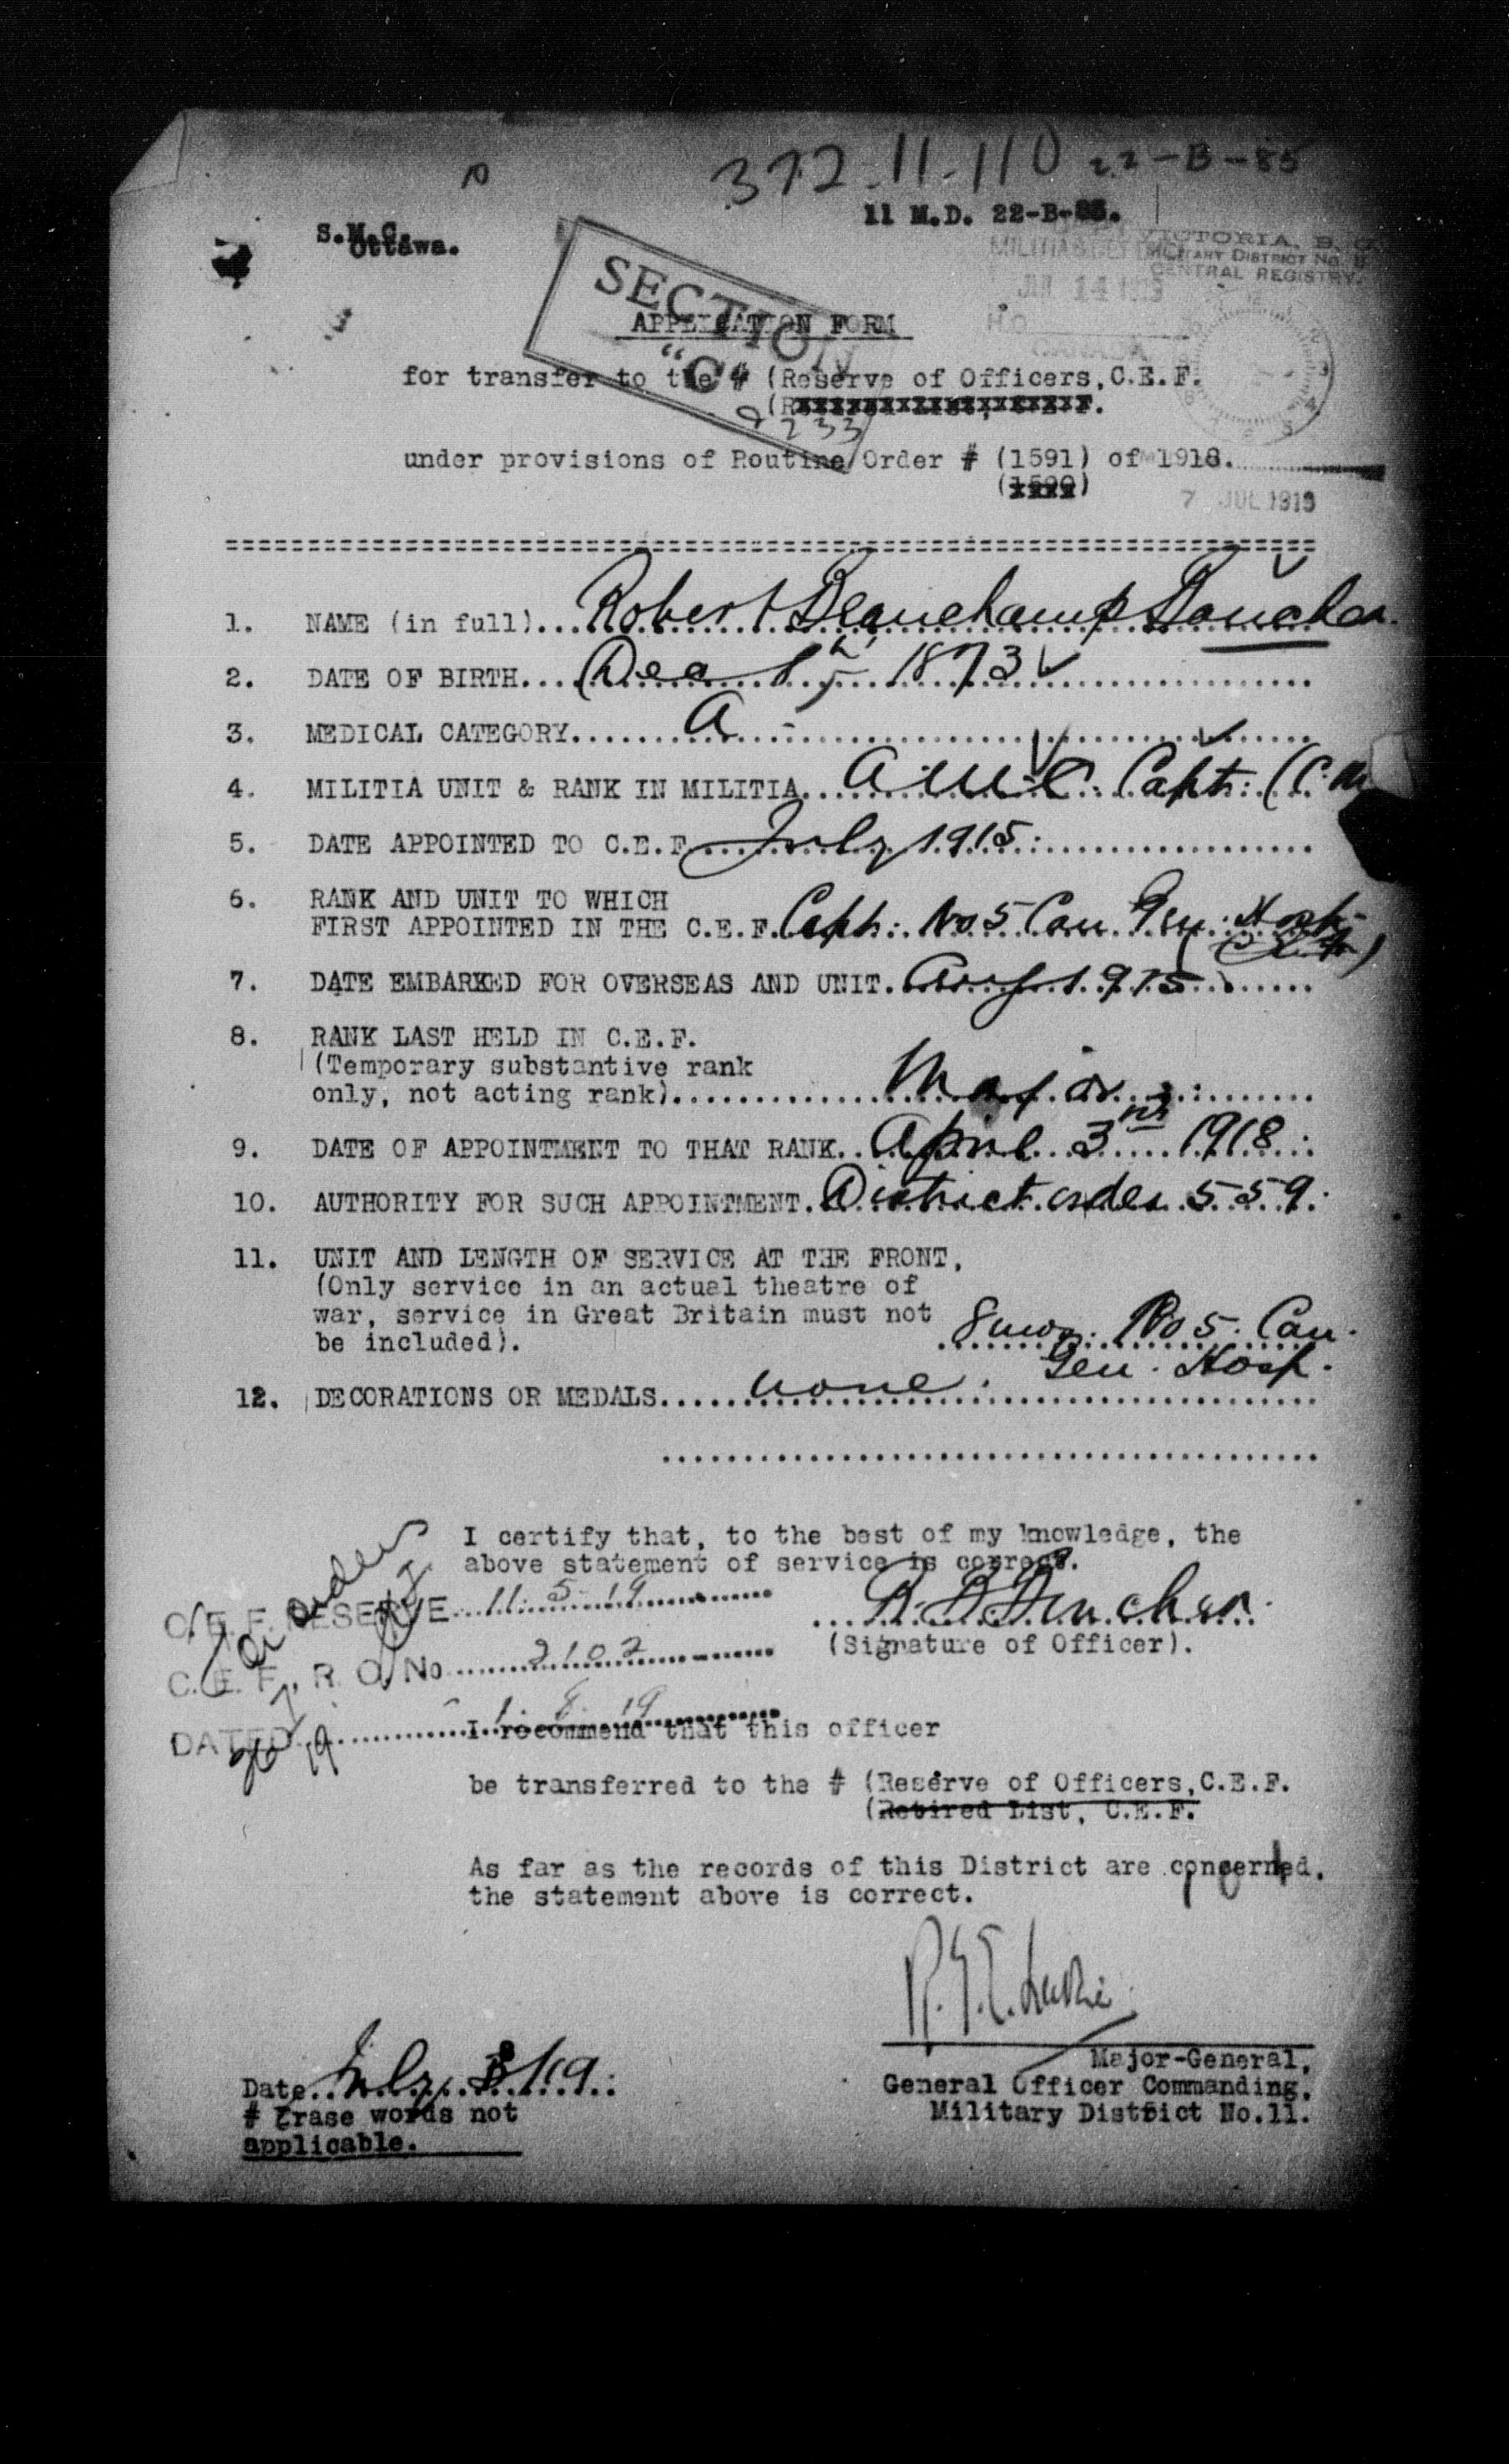 372-11-110 22-B-85
11 M.D. 22-B-85.
S.M.C.
Ottawa.
VICTORIA, B. C.
MILITARY DISTRICT No. 11
CENTRAL REGISTRY.
JUL 14 1919
H.Q.
CANADA
SECTION
"C"
APPLICATION FORM
for transfer to the # (Reserve of Officers, C.E.F.
233
under provisions of Routine Order # (1591) of 1918.
7 JUL 1919
1. NAME (in full)... Robert Beauchamp Boucher
2. DATE OF BIRTH... Dec 1873
3. MEDICAL CATEGORY... A
4. MILITIA UNIT & RANK IN MILITIA... A M C. Capt: (C.M
5. DATE APPOINTED TO C.E.F... July 1915
6. RANK AND UNIT TO WHICH
FIRST APPOINTED IN THE C.E.F. Capt: No 5 Can. Gen: Hosp-
7. DATE EMBARKED FOR OVERSEAS AND UNIT. Aug 1915
8. RANK LAST HELD IN C.E.F.
(Temporary substantive rank
only, not acting rank)... Major
9. DATE OF APPOINTMENT TO THAT RANK.. April 3rd 1918
10. AUTHORITY FOR SUCH APPOINTMENT. District order 559.
11. UNIT AND LENGTH OF SERVICE AT THE FRONT,
(Only service in an actual theatre of
war, service in Great Britain must not
be included). 8 mos. No 5. Can.
Gen. Hosp.
12. DECORATIONS OR MEDALS... none.
I certify that, to the best of my knowledge, the
above statement of service is correct.
C.E.F. RESERVE 11-5-19
R. B. Boucher
(Signature of Officer).
C.E.F., R. O. No 2102
DATED 1. 8. 19
I recommend that this officer
be transferred to the # (Reserve of Officers, C.E.F.
(Retired List, C.E.F.
As far as the records of this District are concerned,
the statement above is correct.
R. G. E. Leckie
Major-General,
General Officer Commanding,
Military District No.11.
Date.. July 8/19.
# Erase words not
applicable.